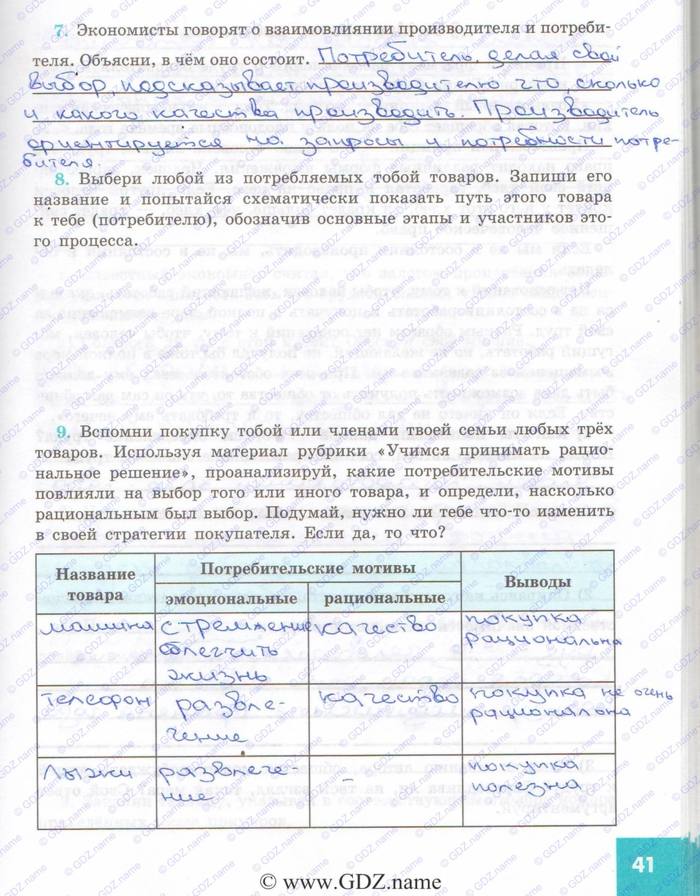 7. Экономисты говорят о взаимовлиянии производителя и потреби-
теля. Объясни, в чём оно состоит. Потребитель, делая свой
выбор, подсказывает производителю что, сколько
и какого качества производить. Производитель
ориентируется на запросы и потребности потре-
бителя.
8. Выбери любой из потребляемых тобой товаров. Запиши его
название и попытайся схематически показать путь этого товара
к тебе (потребителю), обозначив основные этапы и участников это-
го процесса.
9. Вспомни покупку тобой или членами твоей семьи любых трёх
товаров. Используя материал рубрики «Учимся принимать рацио-
нальное решение», проанализируй, какие потребительские мотивы
повлияли на выбор того или иного товара, и определи, насколько
рациональным был выбор. Подумай, нужно ли тебе что-то изменить
в своей стратегии покупателя. Если да, то что?
Название
товара
Потребительские мотивы
эмоциональные
рациональные
Выводы
машина
стремление
облегчить
жизнь
качество
покупка
рациональна
телефон
развле-
чение
качество
покупка не очень
рациональна
Лыжи
развлече-
ние
–
покупка
полезна
41
© www.GDZ.name